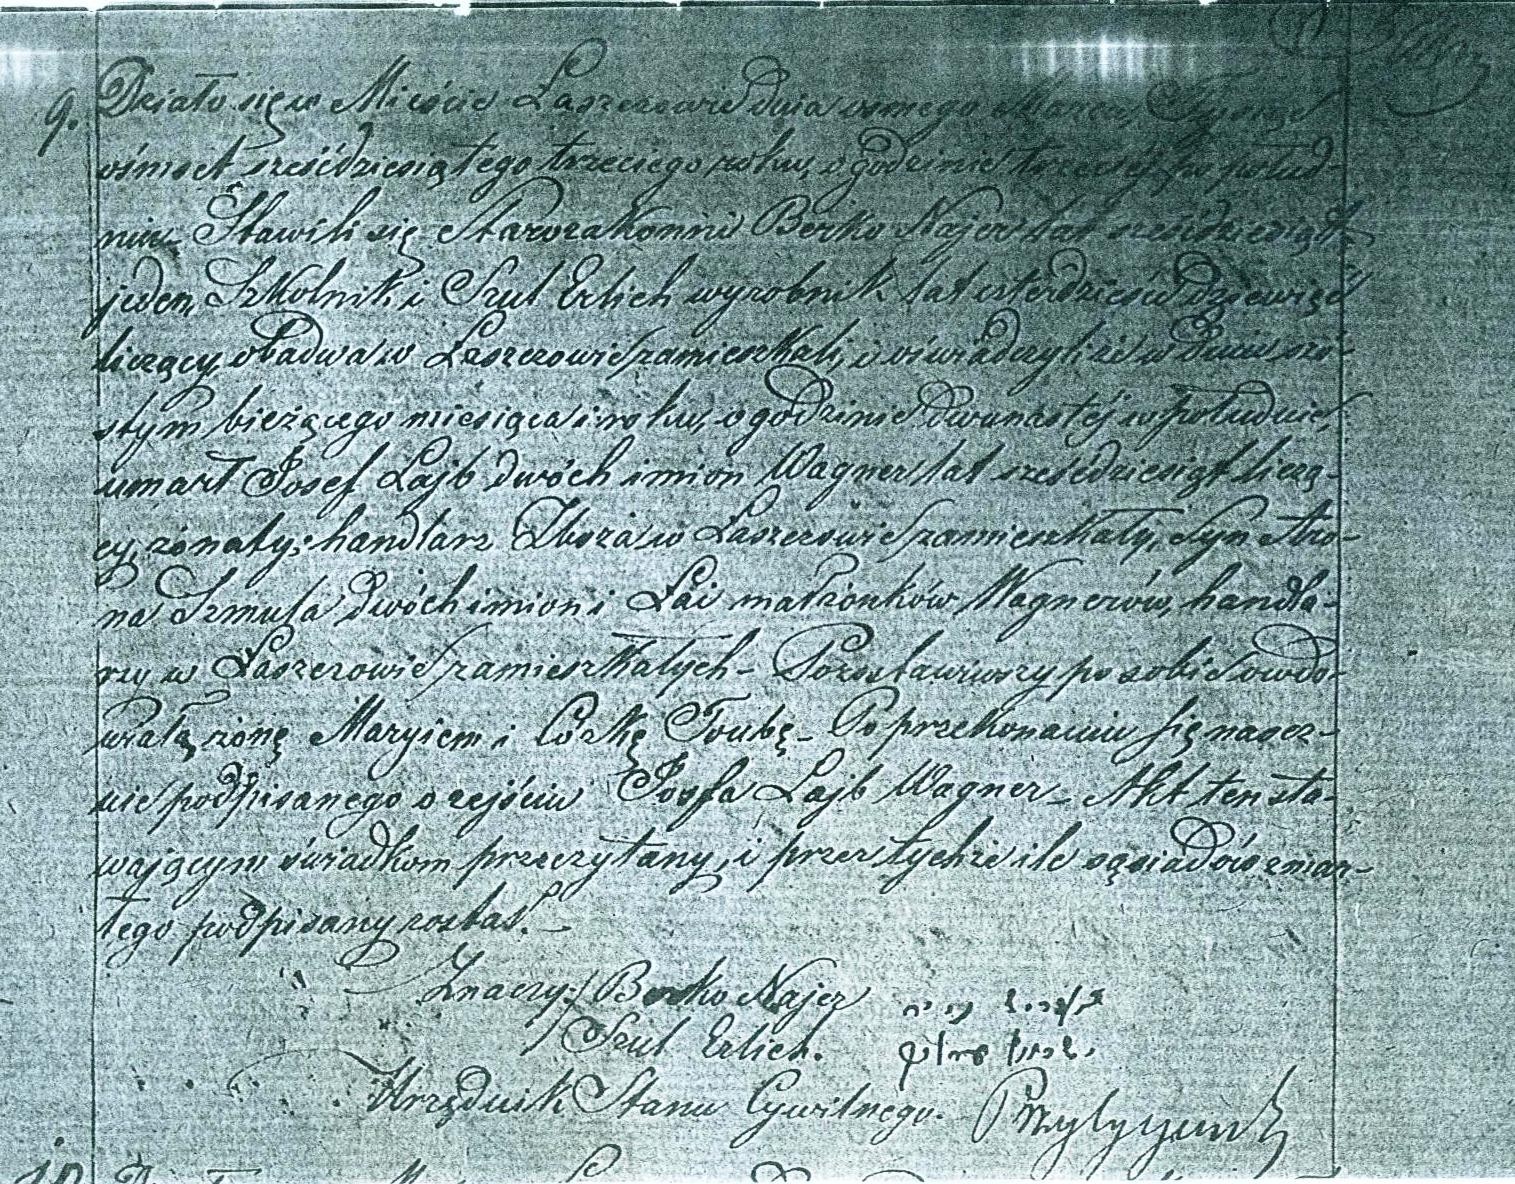 9. Działo się w Mieście Łaszczowie dnia osmego Marca, Tysiąc
ośmset sześćdziesiątego trzeciego roku, o godzinie trzeciej po połud-
niu. Stawili się Starozakonni Berko Najer lat sześćdziesiąt
jeden Szkolnik i Szul Erlich wyrobnik lat czterdzieści dziewięć
liczący, obadwa w Łaszczowie zamieszkali, i oświadczyli że w dniu szó-
stym bieżącego miesiąca i roku, o godzinie dwunastej w południe,
umarł Josef Lajb dwóch imion Wagner lat sześćdziesiąt liczą-
cy, żonaty, handlarz Zboża w Łaszczowie zamieszkały, syn Aro-
na Szmula dwóch imion i Łai małżonków Wagnerów, handla-
rzy w Łaszczowie zamieszkałych – Pozostawiwszy po sobie owdo-
wiałą żonę Maryiem i Córkę Toubę – Po przekonaniu się naocz-
nie podpisanego o zejściu Josfa Lajb Wagner – Akt ten sta-
wającym świadkom przeczytany, i przez tychże ile sąsiadów zmar-
łego podpisany został. –
Znaczy: Berko Najer
Szul Erlich.
Urzędnik Stanu Cywilnego.
10.